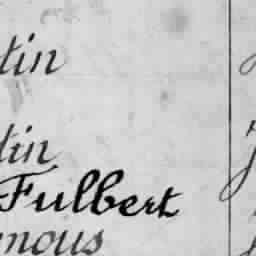 tin
tin
Fulbert
mous